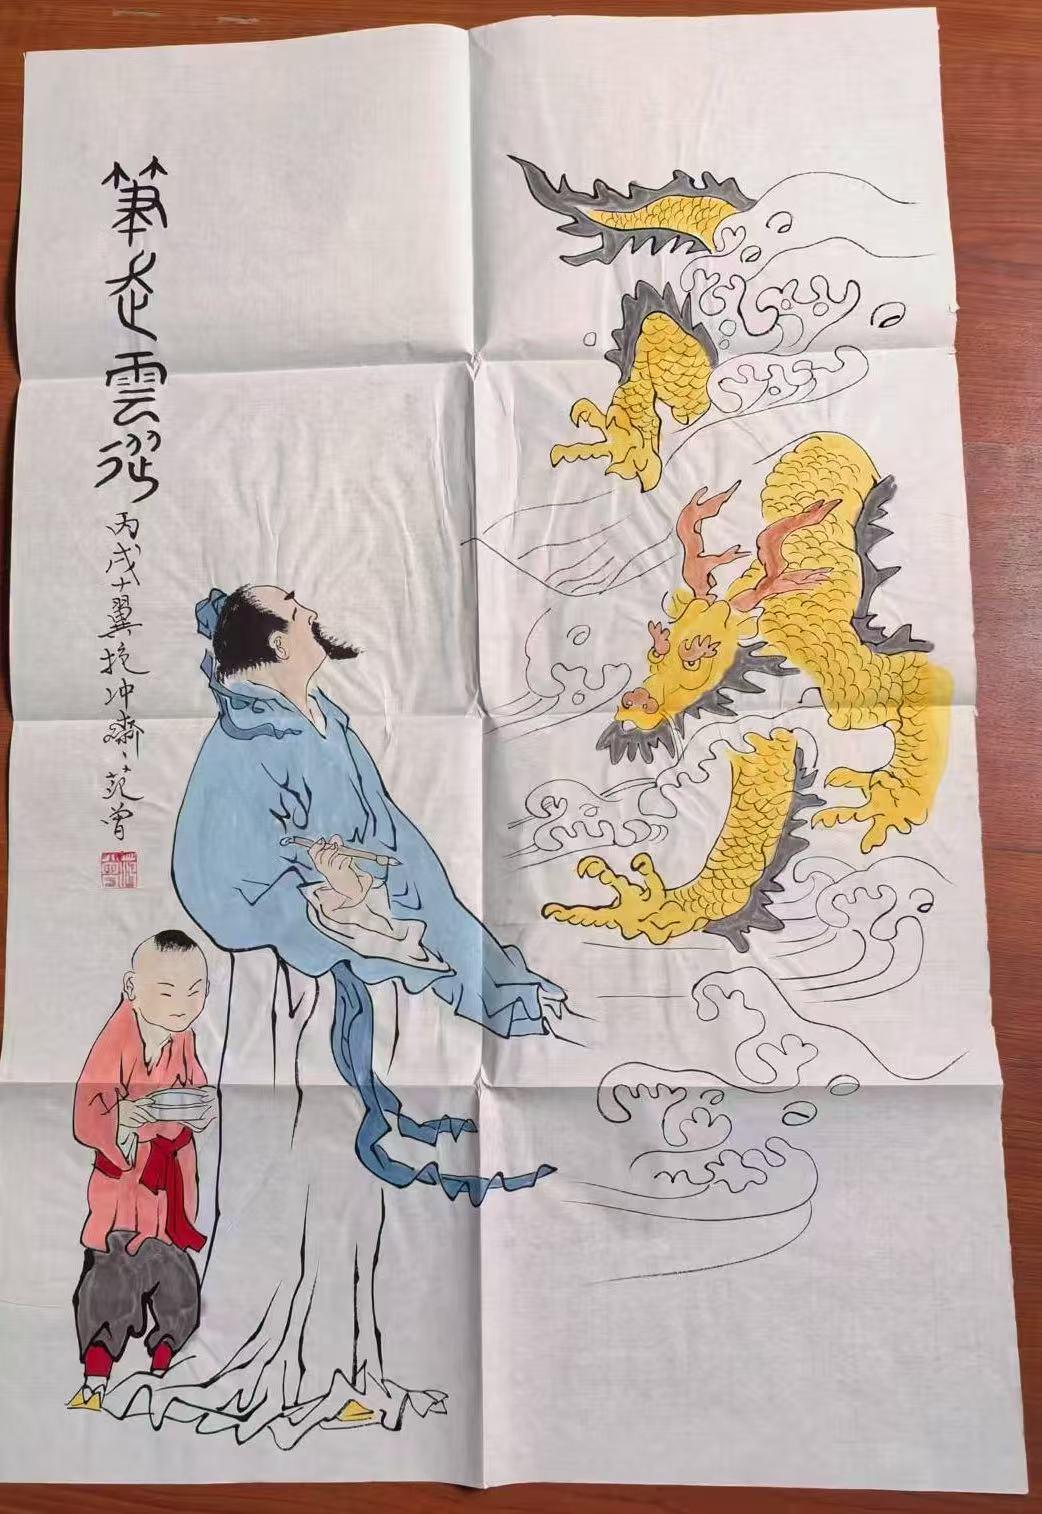 筆走雲
丙戌十翼抱冲齋范曾